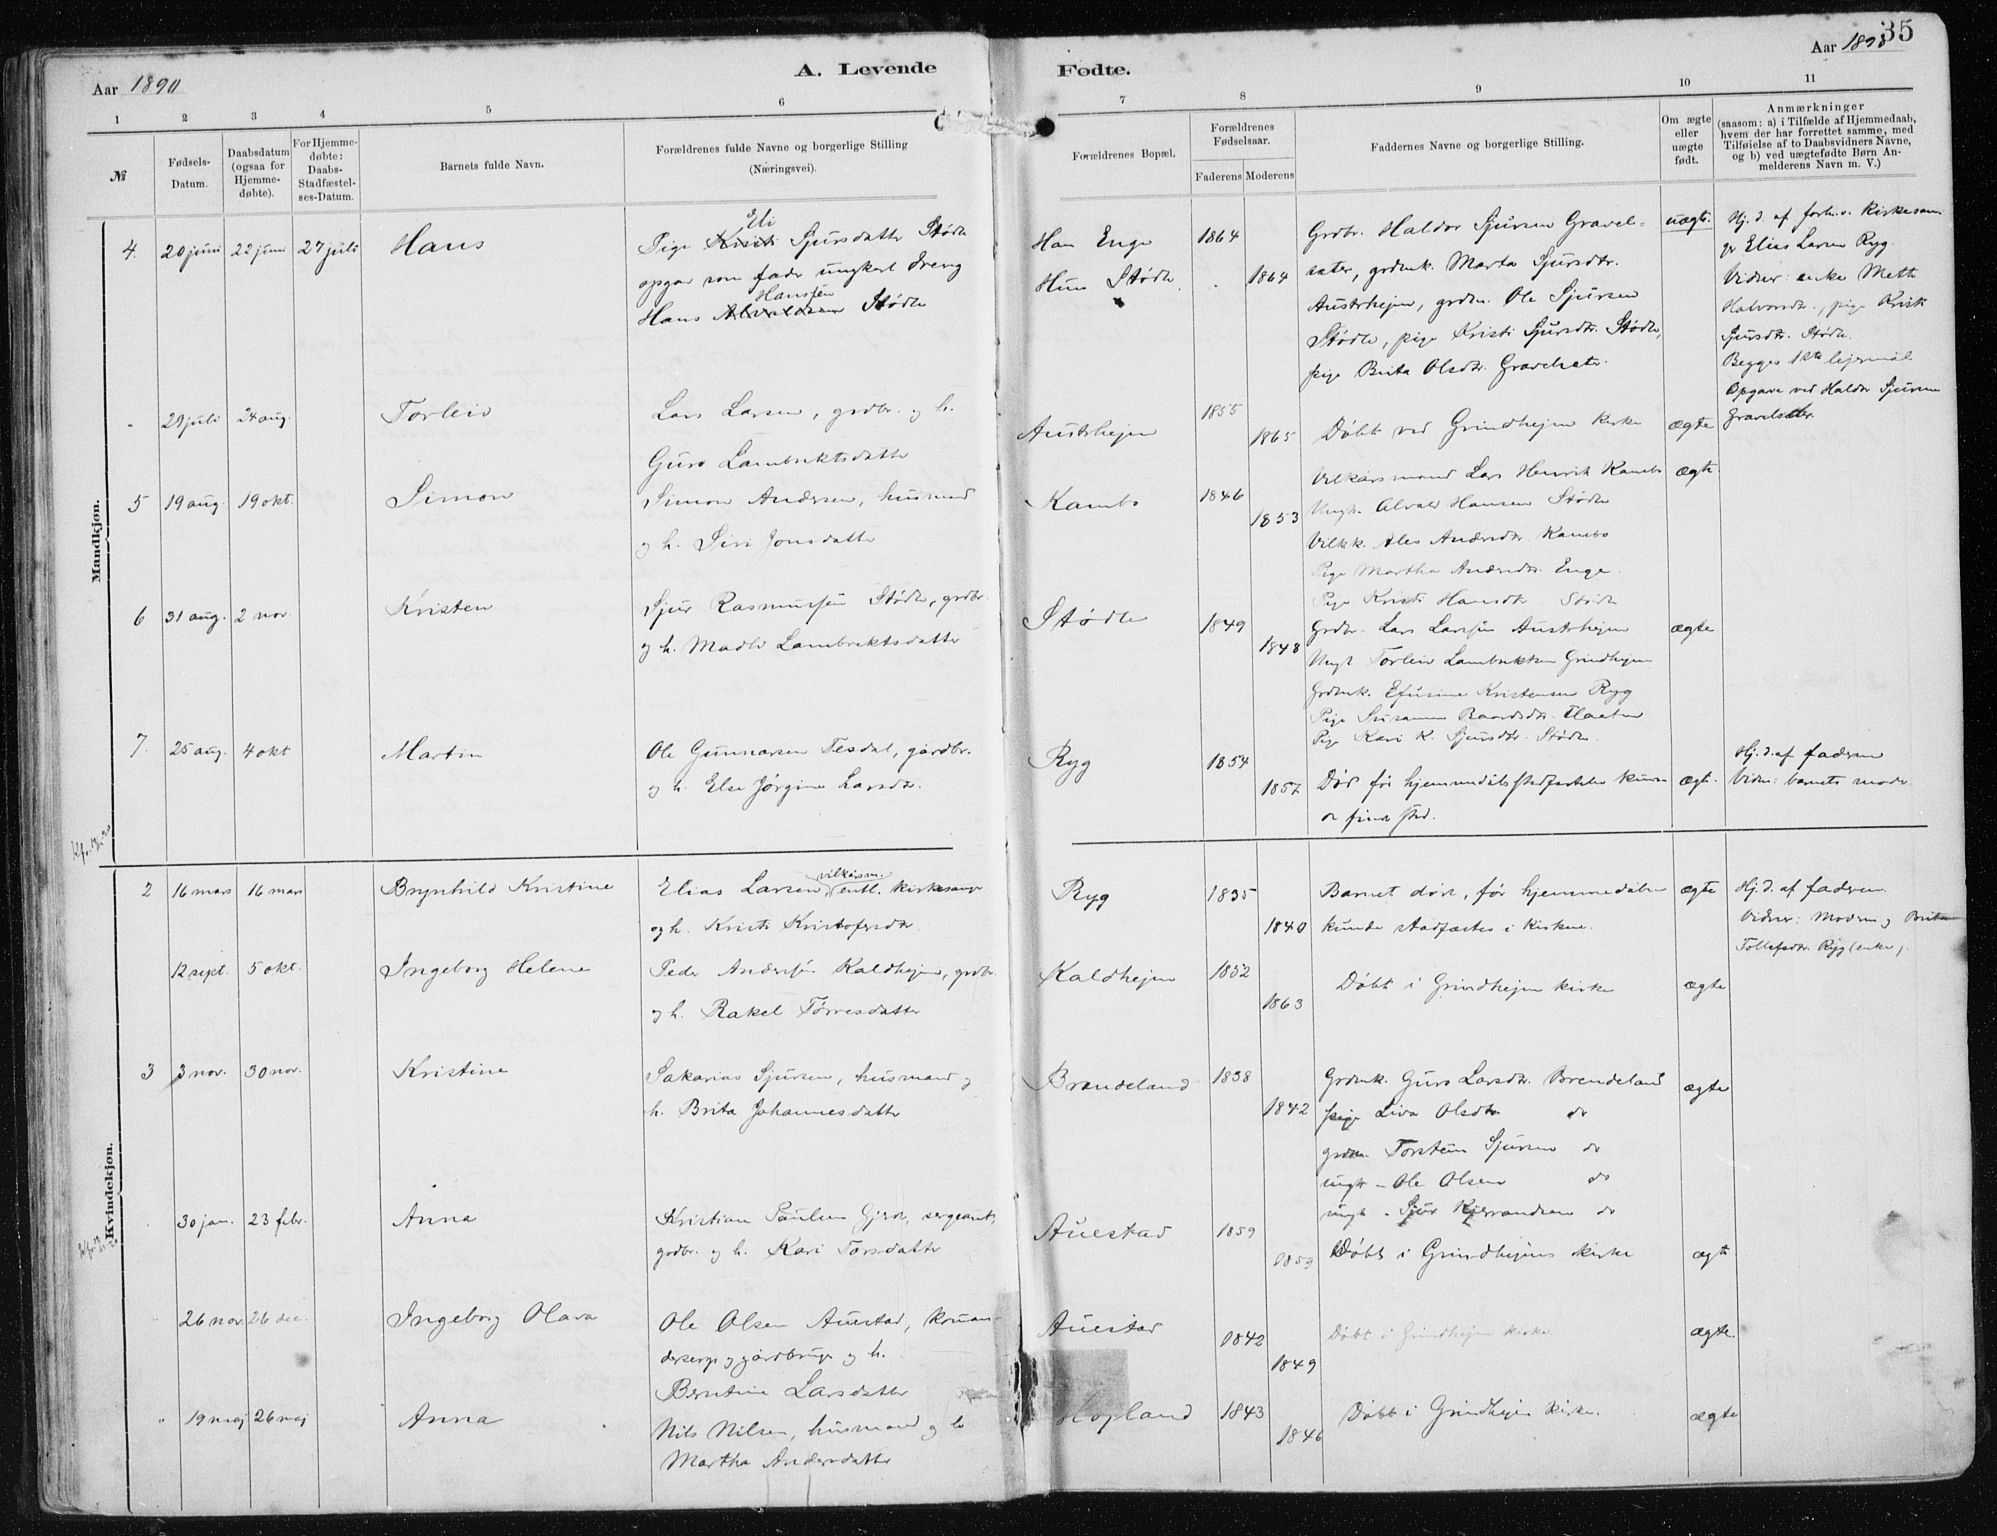 35
Aar 1890
A. Levende Fødte.
Aar 1890
1 2 3 4 5 6 7 8 9 10 11
№
Fødsels-Datum.
Daabsdatum (ogsaa for Hjemmedøbte).
For Hjemmedøbte: Daabs-Stadfæstelses-Datum.
Barnets fulde Navn.
Forældrenes fulde Navne og borgerlige Stilling (Næringsvei).
Forældrenes Bopæl.
Forældrenes Fødselsaar.
Faderens Moderens
Faddernes Navne og borgerlige Stilling.
Om ægte eller uægte født.
Anmærkninger (saasom: a) i Tilfælde af Hjemmedaab, hvem der har forrettet samme, med Tilføielse af to Daabsvidners Navne, og b) ved uægtefødte Børn Anmelderens Navn m. V.)
Mandkjøn.
4. 20 juni 22 juni 27 juli Hans
Eli
Pige Kristi Sjursdatter Stødle
opgar som fader ungkarl dreng
Hansen
Hans Alvaldsen Stødle
Han Enge 1864
Hun Stødle. 1864
Grdbr. Haldor Sjursen Gravel-
sæter, grdmk. Marta Sjursdtr.
Austrhejm, grdm. Ole Sjursen
Stødle, pige Kristi Sjursdtr. Stødle,
pige Brita Olsdtr. Gravelsæter.
uægt.
Hj. d. af forh.v. Kirkesan
ger Elias Larsen Ryg.
Vidner: enke Mette
Halvorsdtr., pige Kristi
Sjursdtr. Stødle.
Begges 1ste lejermål
Opgave ved Haldor Sjursen
Gravelsæter.
" 29 juli 24 aug. Torleiv
Lars Larsen, grdbr. og h.
Guro Lambrektsdatter
Austrhejm 1855 1865
Døbt ved Grindhejm kirke ægte
5 19 aug. 19 okt. Simon
Simon Andersen, husmand
og h. Siri Jonsdatter
Kambo 1846 1853
Vilkårsmand Lars Henrik Kambo ægte
Ungk. Alvald Hansen Stødle
Vilkk. Ales Andersdtr. Kambo
Pige Martha Andersdtr. Enge.
Pige Kristi Hansdtr. Stødle
6 31 aug. 2 nov. Kristen
Sjur Rasmussen Stødle, grdbr.
og h. Madli Lambrektsdatter
Stødle 1849 1848
Grdbr. Lars Larsen Austrhejm ægte
Ungk. Torleiv Lambrektsen Grindhejm
Grdmk. Efusine Kristensen Ryg
Pige Susanne Baardsdtr. Flaaten
Pige Kari K. Sjursdtr. Stødle.
7. 25 aug. 4 okt Martin
Ole Gunnarsen Tesdal, gårdbr.
og h. Else Jørgine Larsdtr.
Ryg 1854 1857
Død før hjemmedåbsstadfæstelse kunne ægt.
finde sted.
Hj. d. af faderen
Vidne: barnets moder.
Kvindekjøn.
2 16 mars 16 mars Brynhild Kristine
vilkårsm.
Elias Larsen entl. kirkesanger
og h. Kristi Kristofersdtr.
Ryg 1835 1840
Barnet døde, før hjemmedåben ægte
kunde stadfæstes i kirken.
Hj. d. af faderen.
Vidner: Moderen og Brita
Tollefsdtr. Ryg (enke).
12 sept. 5 okt. Ingeborg Helene
Peder Andersen Kaldhejm, grdbr.
og h. Rakel Tørresdatter
Kaldhejm 1852 1863
Døbt i Grindhejm kirke ægte
3 3 nov. 30 nov. Kristine
Sakarias Sjursen, husmand og
h. Brita Johannesdatter
Brandeland 1838 1842
Grdmk. Guro Larsdtr. Brendeland ægte
pige Liva Olsdtr do
grdm. Torstein Sjursen do
ungk - Ole Olsen do
ungk - Sjur Kjerrandsen do
30 jan. 23 febr. Anna
Kristian Paulsen Gjerde, sergeant,
grdbr. og h. Kari Torsdatter
Auestad 1859 1859
Døbt i Grindhejms kirke ægte
" 26 nov. 26 dec. Ingeborg Olava
Ole Olsen Auestad, koman-
dersergt og gårdbruger og h.
Berntine Larsdatter
Auestad 1842 1849
Døbt i Grindhejm kirke ægte.
" 19 maj 26 maj Anna
Nils Nilsen, husmand og h
Martha Andersdatter
Hopland 1843 1846
Døbt i Grindhejm kirke. ægte